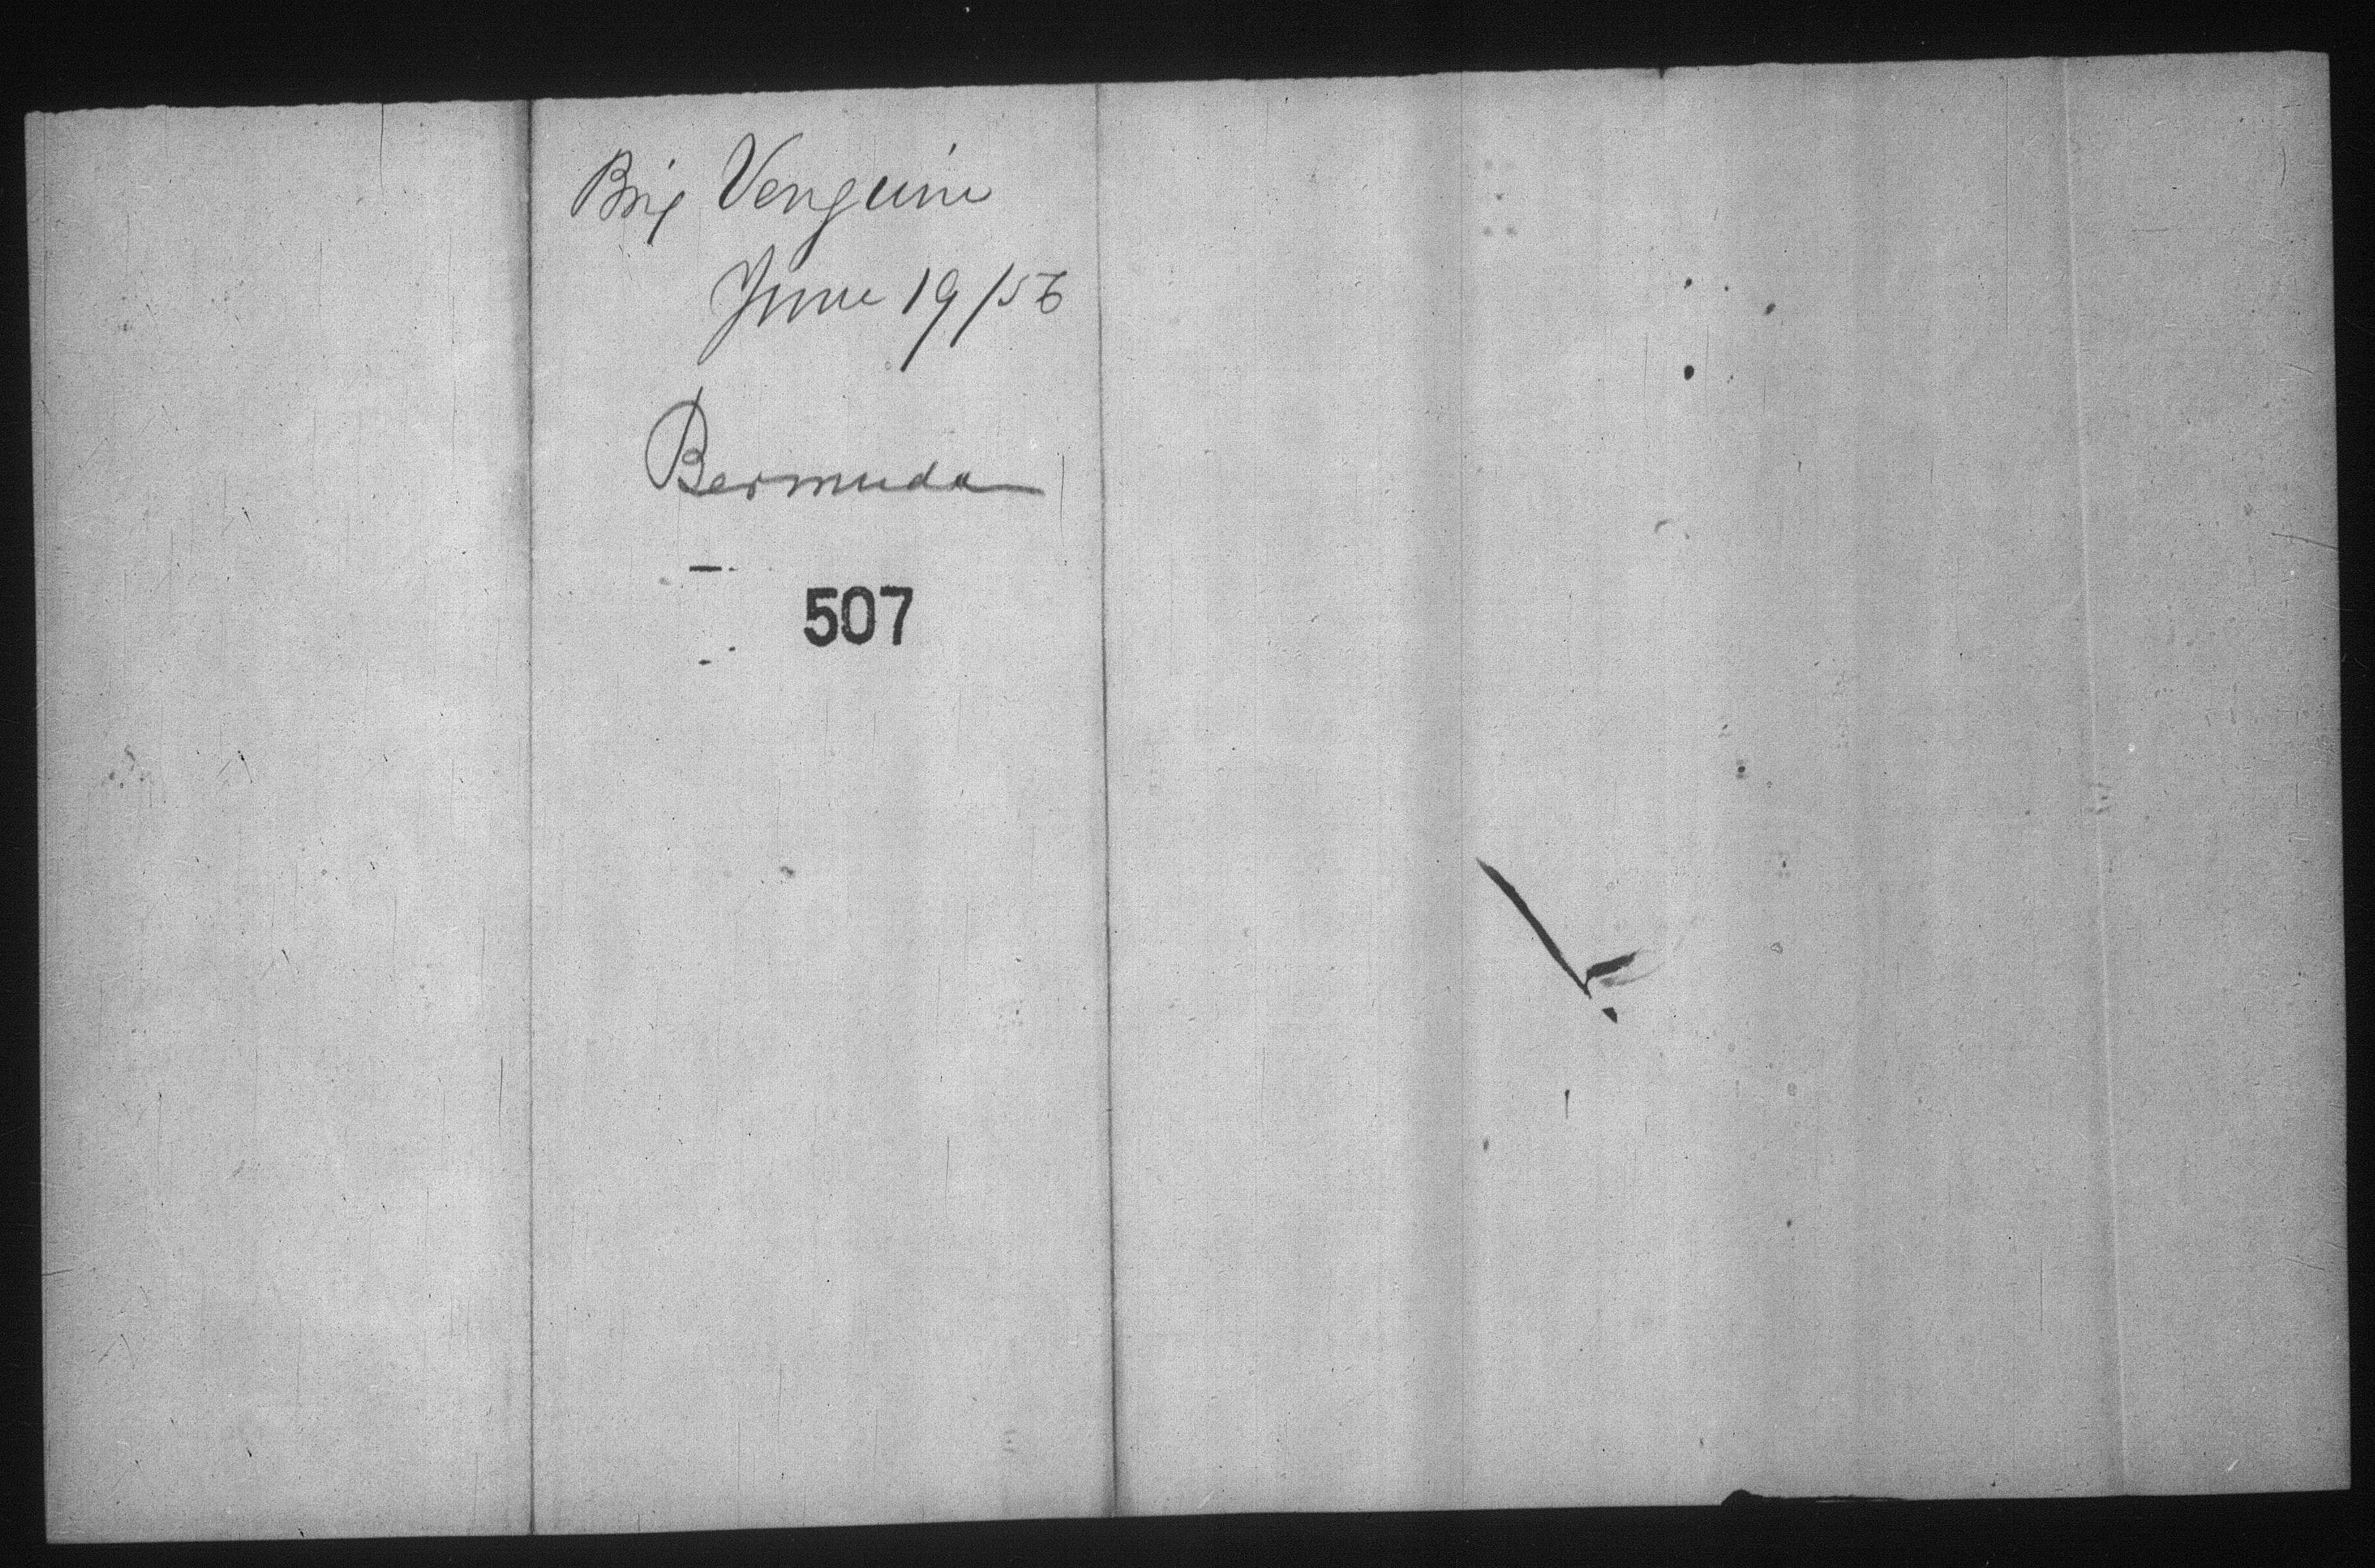 Brig Venguin
June 19/56
Bermuda
507